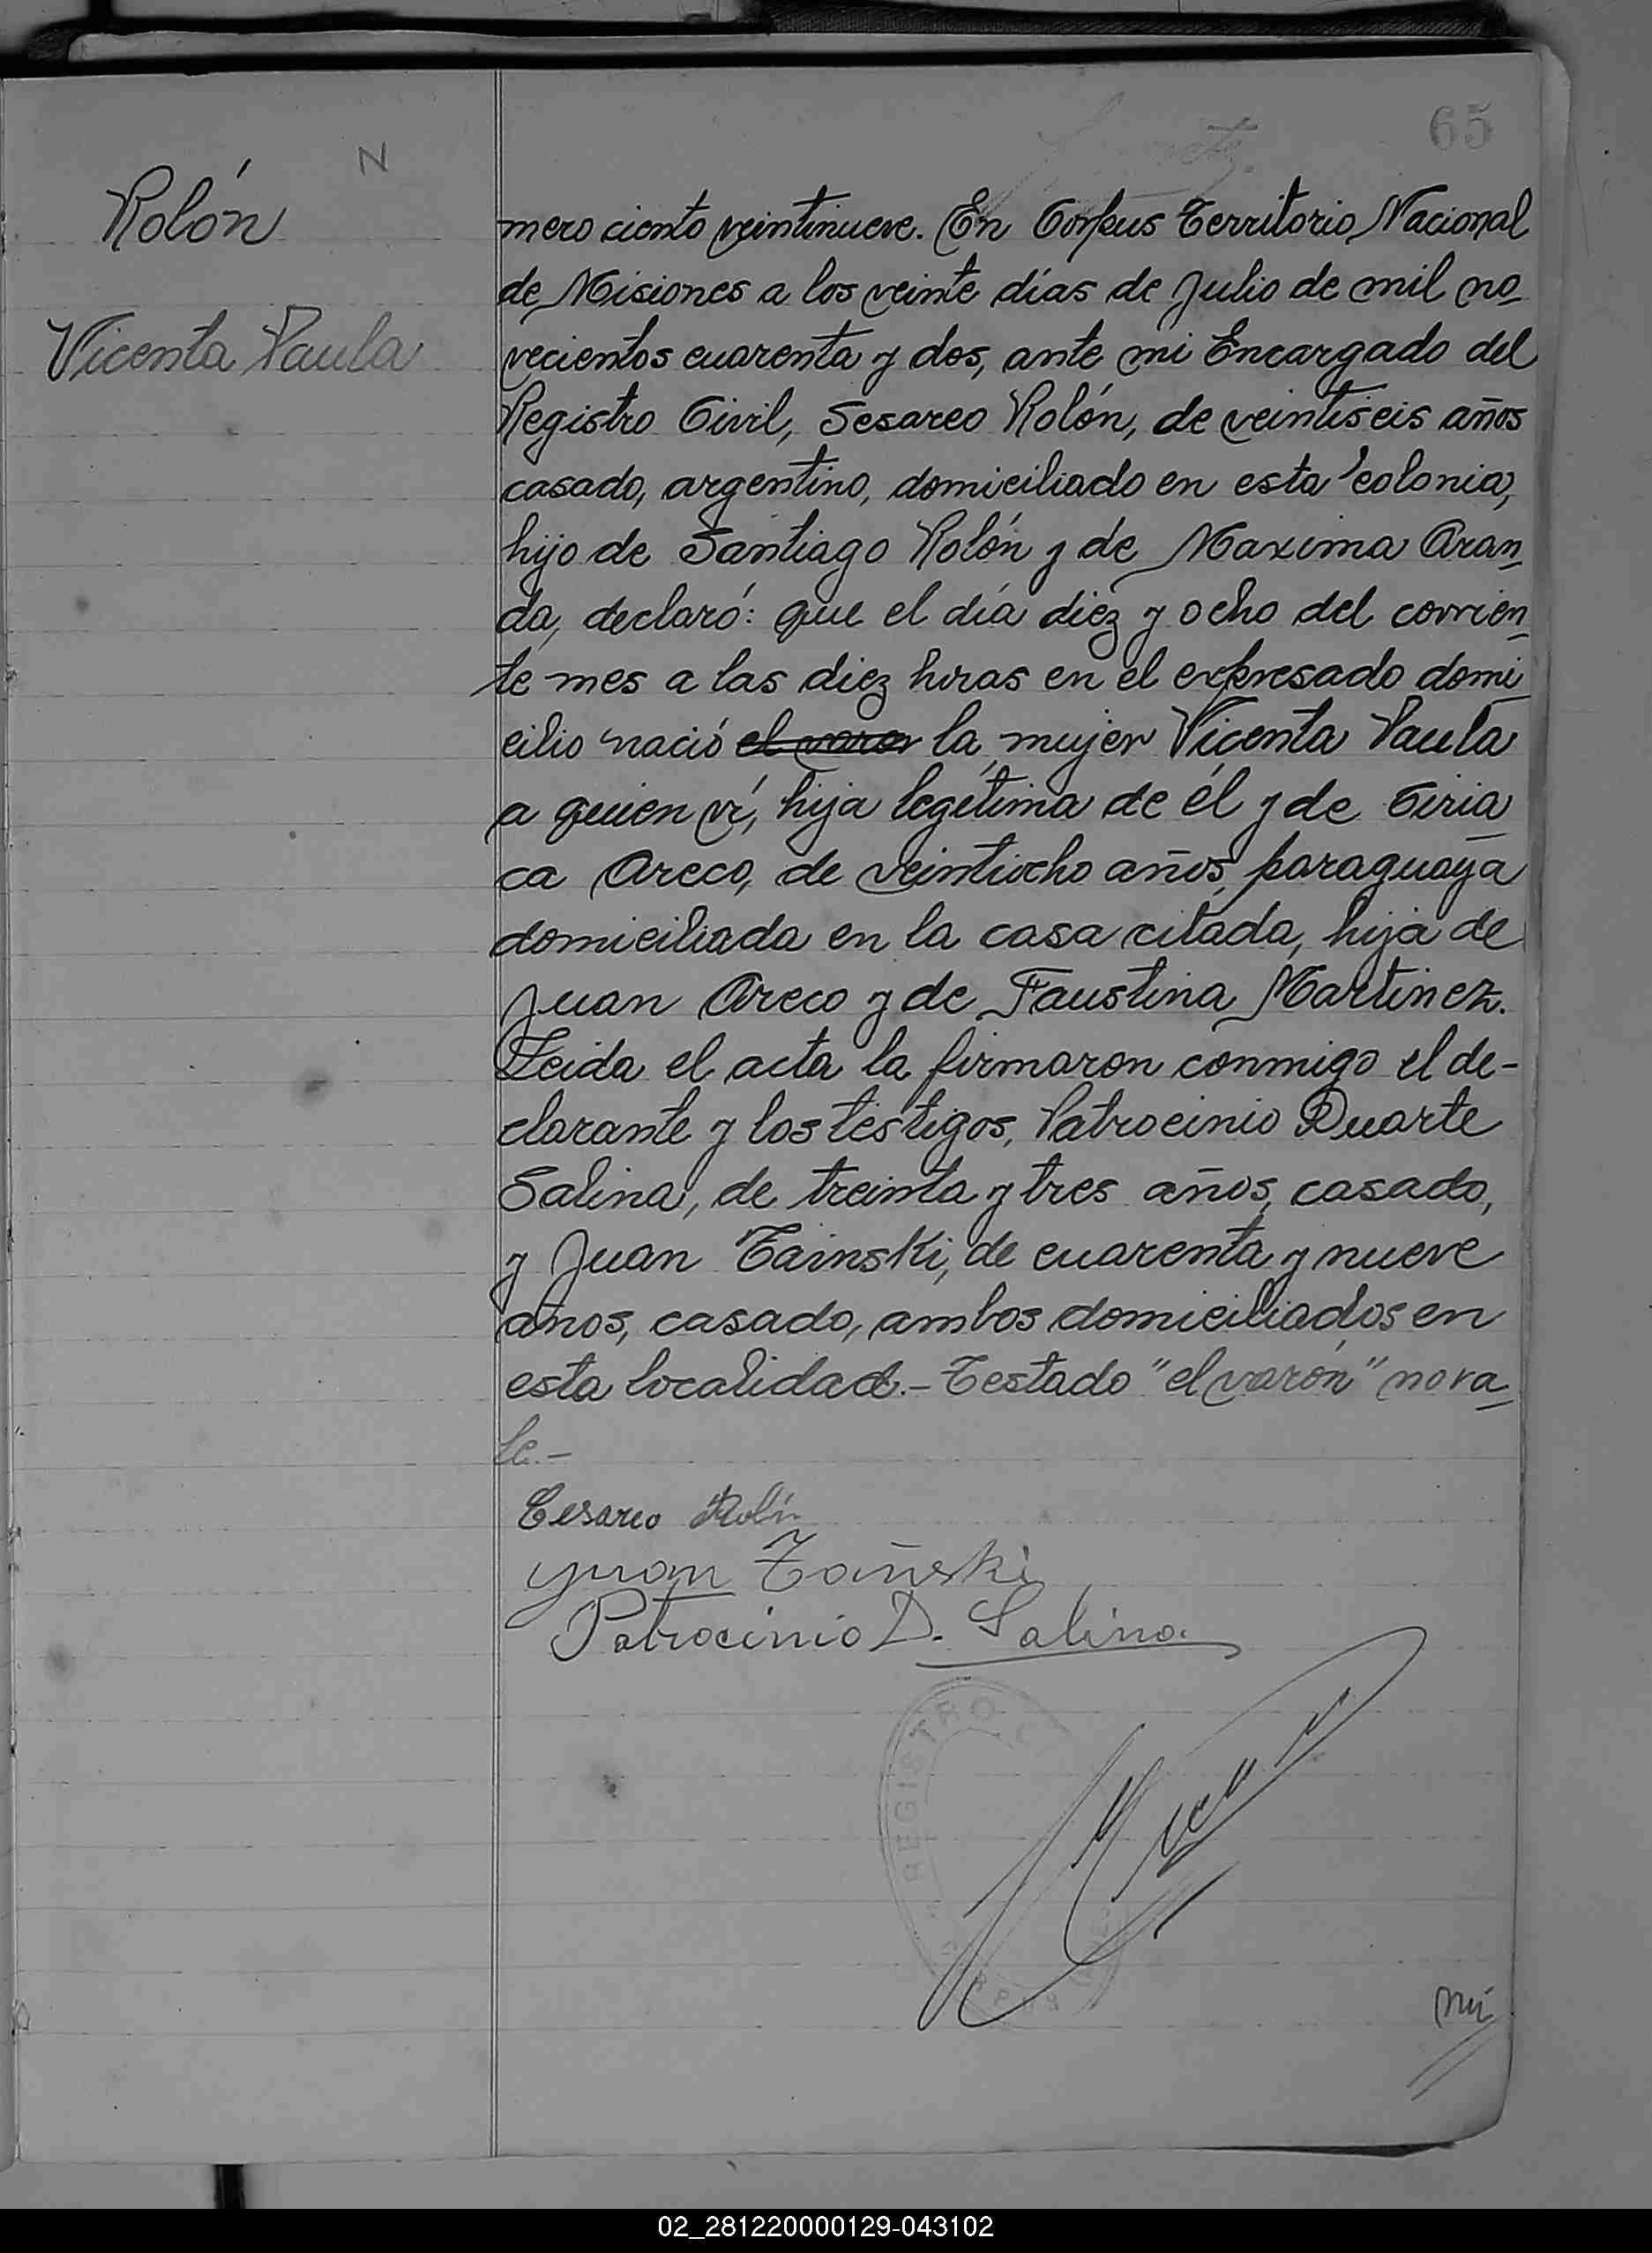 65
N
Rolón
Vicenta Paula
mero ciento veintinueve. En Corpus Territorio Nacional
de Misiones a los veinte días de Julio de mil no
vecientos cuarenta y dos, ante mi Encargado del
Registro Civil, Sesareo Rolón, de veintiseis años
casado, argentino, domiciliado en esta colonia,
hijo de Santiago Rolón y de Maxima Aran
da, declaró: que el día diez y ocho del corrien
te mes a las diez horas en el expresado domi
cilio nació el varon la mujer Vicenta Paula
a quien ví, hija legítima de él y de Ciria
ca Areco, de veintiocho años, paraguaya
domiciliada en la casa citada, hija de
Juan Areco y de Faustina Martinez.
Leida el acta la firmaron conmigo el de-
clarante y los testigos, Patrocinio Duarte
Salina, de treinta y tres años, casado,
y Juan Tainski, de cuarenta y nueve
años, casado, ambos domiciliados en
esta localidad.- Testado "el varón" no va
le.-
Cesareo Rolón
Juan Tañski
Patrocinio D. Salina
REGISTRO C
mi
02_281220000129-043102